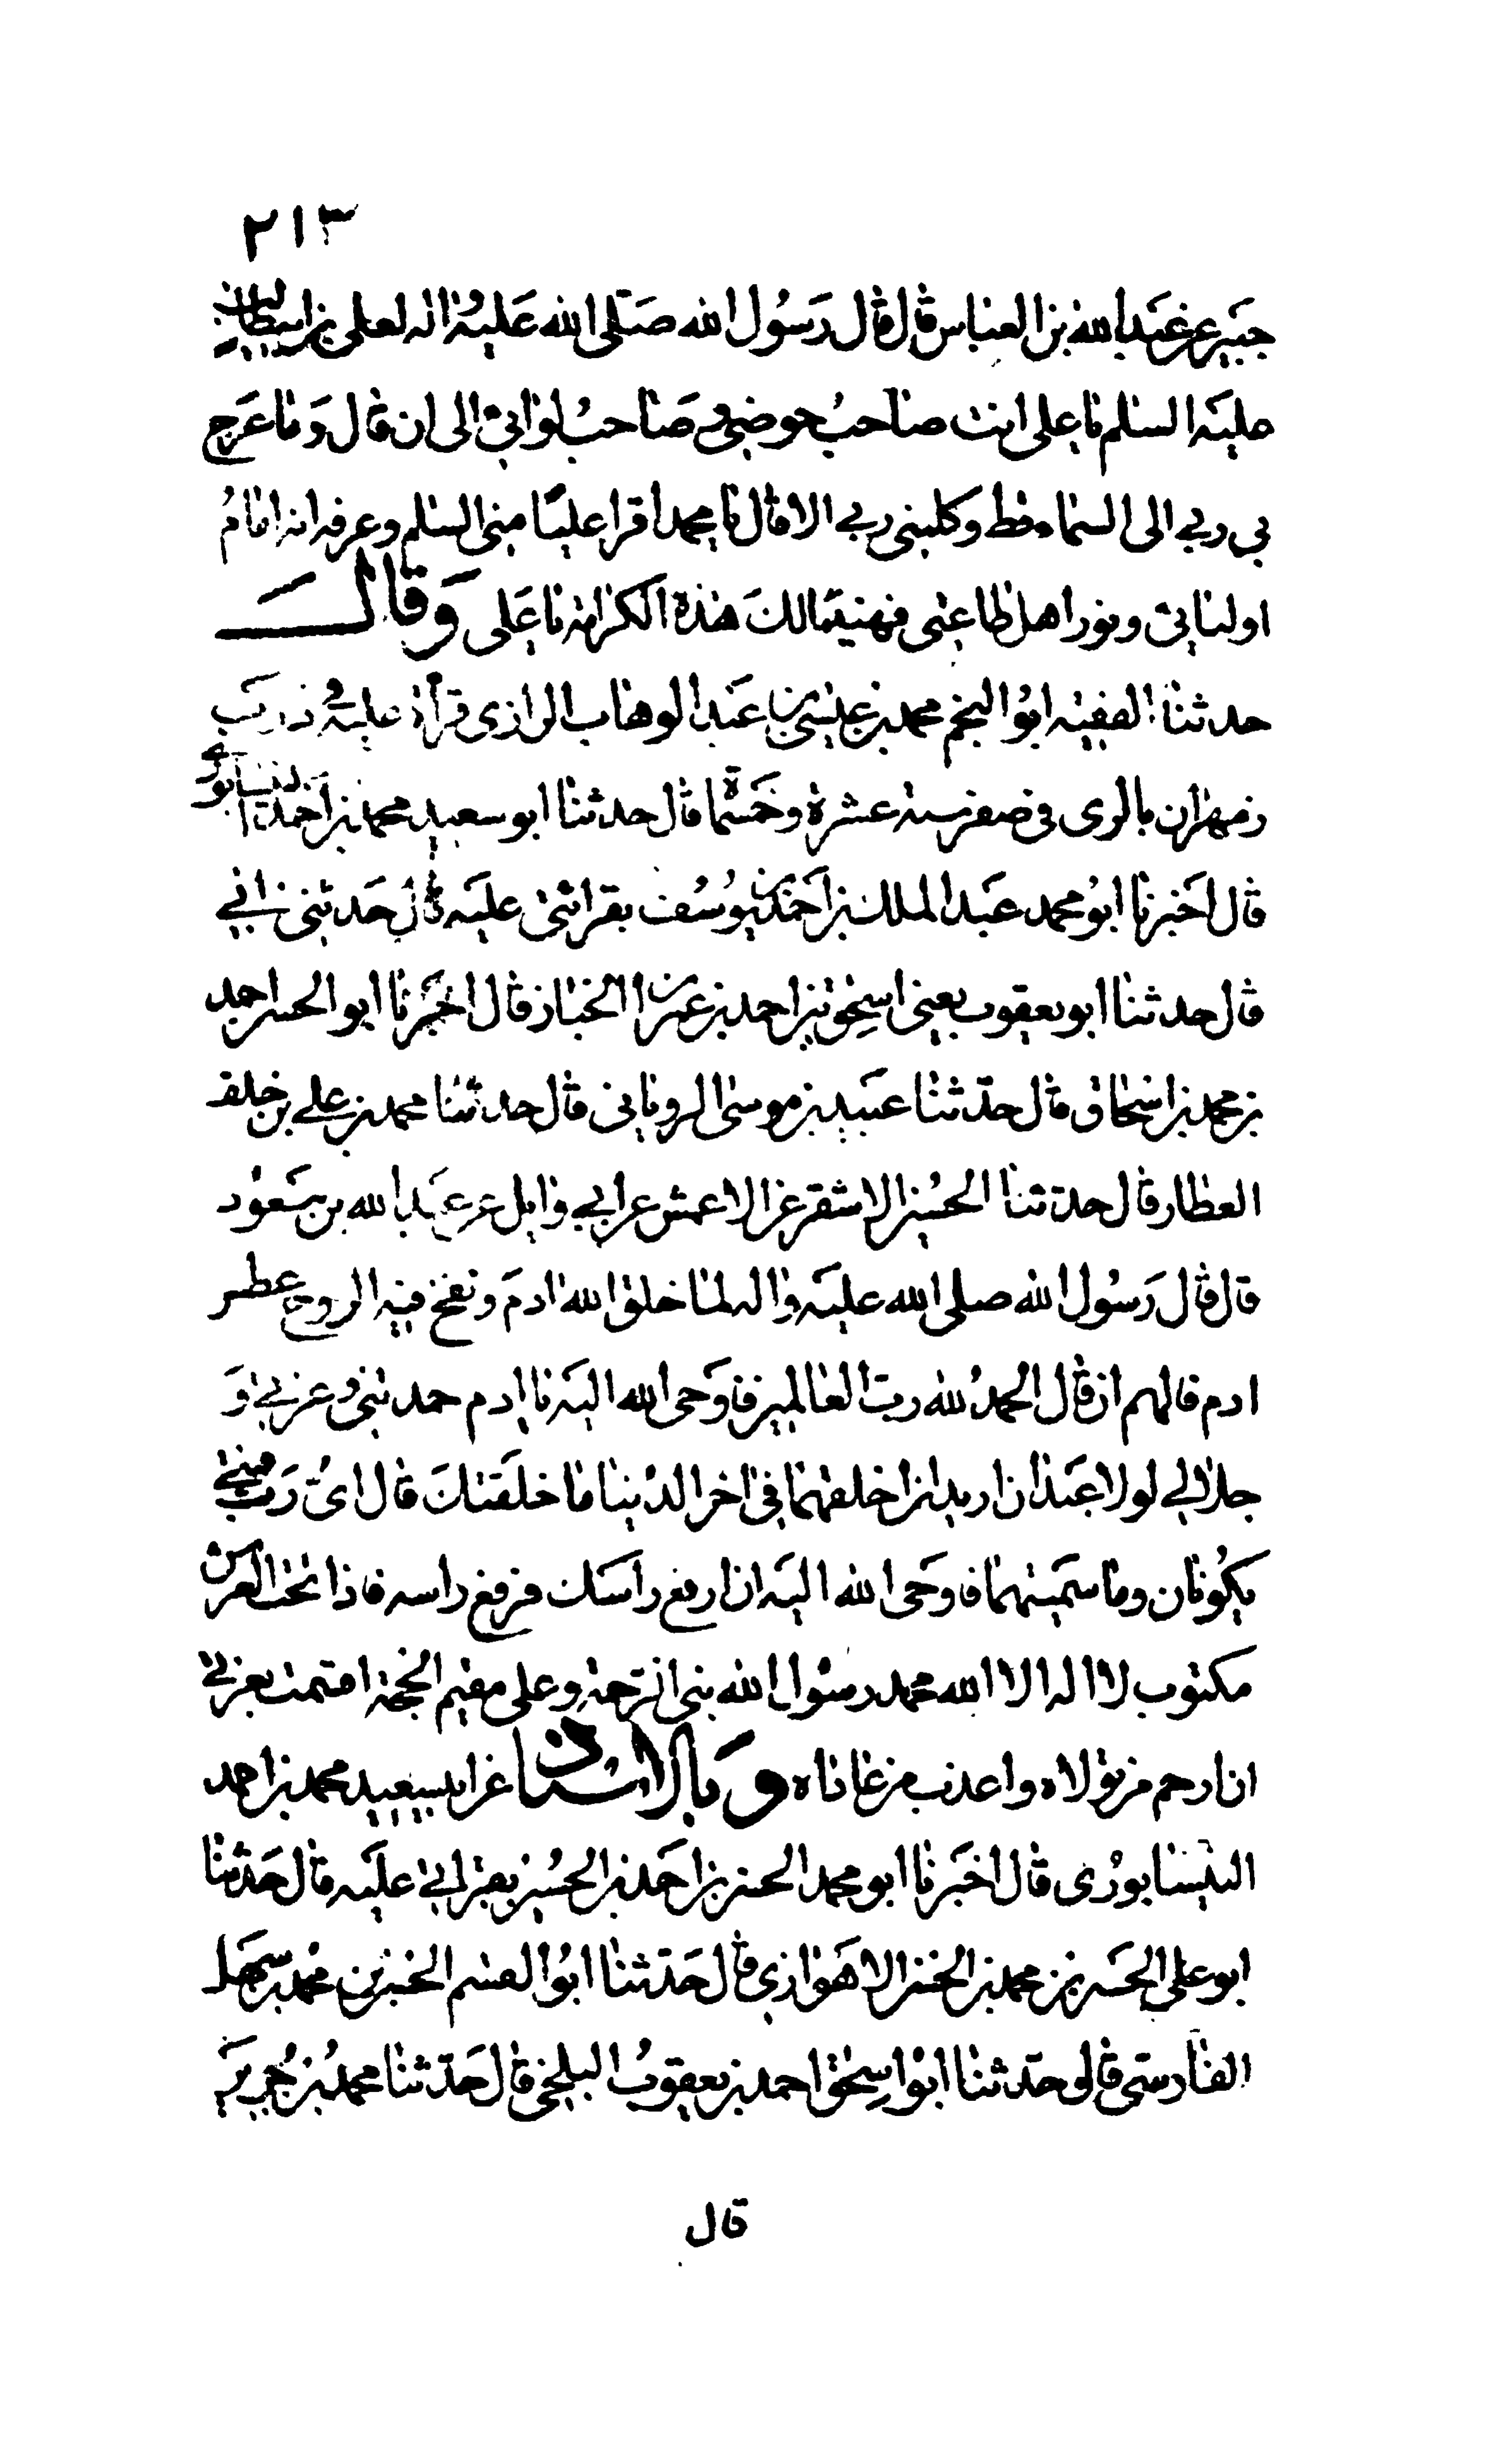 ٢١٣
جبير عن عبد الله بن العباس قال قال رسول الله صلى الله عليه واله لعلى بن ابيطالب
عليه السلم يا على انت صاحب حوضى وصاحب لوائي الى ان قال وما عرج
بي ربي الى السماء قط وكلمنى ربي الا قال يا محمد اقرا عليا منى السلم وعرفه انه امام
اوليائي ونور اهل طاعتى فهنيئا لك هذه الكرامة يا على وقال
حدثنا الفقيه ابو النجم محمد بن عبد الوهاب بن عيسى الرازى قراءة عليه في درب
زمهران بالرى في صفر سنة عشرة وخمسمائة قال حدثنا ابو سعيد محمد بن احمد النيسابوري
قال اخبرنا ابو محمد عبد الملك بن احمد بن يوسف بقرائتى عليه قال حدثنى ابي
قال حدثنا ابو يعقوب يعنى اسحق بن احمد بن عمران الخباز قال اخبرنا ابو الحسن احمد
بن محمد بن اسحاق قال حدثنا عبيد بن موسى الروياني قال حدثنا محمد بن علي بن خلف
العطار قال حدثنا الحسين الاشقر عن الاعمش عن ابي وايل عن عبد الله بن مسعود
قال قال رسول الله صلى الله عليه واله لما خلق الله ادم ونفخ فيه الروح عطس
ادم فالهم ان قال الحمد لله رب العالمين فاوحى الله اليه يا ادم حمدتنى وعزتي و
جلالي لولا عبدان اريد ان اخلقهما في اخر الدنيا ما خلقتك قال اى رب متى
يكونان وما سميتهما فاوحى الله اليه ان ارفع راسك فرفع راسه فاذا تحت العرش
مكتوب لا اله الا الله محمد رسول الله نبى الرحمة وعلى مقيم الحجة اقسمت بعزتي
ان ارحم من تولاه واعذب من عاداه وبالاسناد عن ابي سعيد محمد بن احمد
النيسابورى قال اخبرنا ابو محمد الحسن بن احمد بن الحسين بقرائتي عليه قال حدثنا
ابو على الحسن بن محمد بن الحسن الاهوازي قال حدثنا ابو القسم الحسن بن محمد بن سهل
الفارسى قال حدثنا ابو اسحق احمد بن يعقوب البلخي قال حدثنا محمد بن جرير
قال